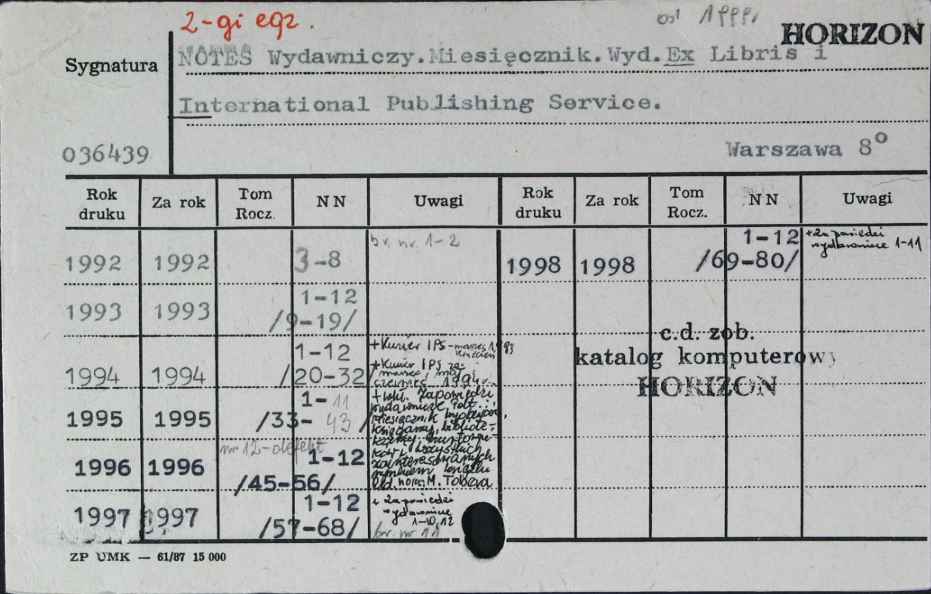 2-gi egz.
od 1999r
HORIZON
Sygnatura
NOTES Wydawniczy.Miesięcznik.Wyd.Ex Libris i
International Publishing Service.
036439
Warszawa 8°
Rok druku Za rok Tom Rocz. NN Uwagi Rok druku Za rok Tom Rocz. NN Uwagi
1992 1992 3-8 br. nr. 1-2
1998 1998 1-12 /69-80/ +zapowiedzi wydawnicze 1-11
1993 1993 1-12 /9-19/
1994 1994 1-12 /20-32/ +Kurier IPS-marzec 1993 kwiecień
+Kurier IPS za: marzec, maj, czerwiec 1994
1995 1995 1-11 /33-43/ +tyt. Zapowiedzi wydawnicze
miesięcznik wydawców,
księgarzy, bibliote-
wszystkich
zainteresowanych
rynkiem książki
M. Tobera
1996 1996 nr 12-defekt 1-12 /45-56/
1997 1997 1-12 /57-68/ + zapowiedzi wydawnicze 1-10, 12
br. nr 11
c.d. zob.
katalog komputerowy
HORIZON
ZP UMK — 61/87 15 000